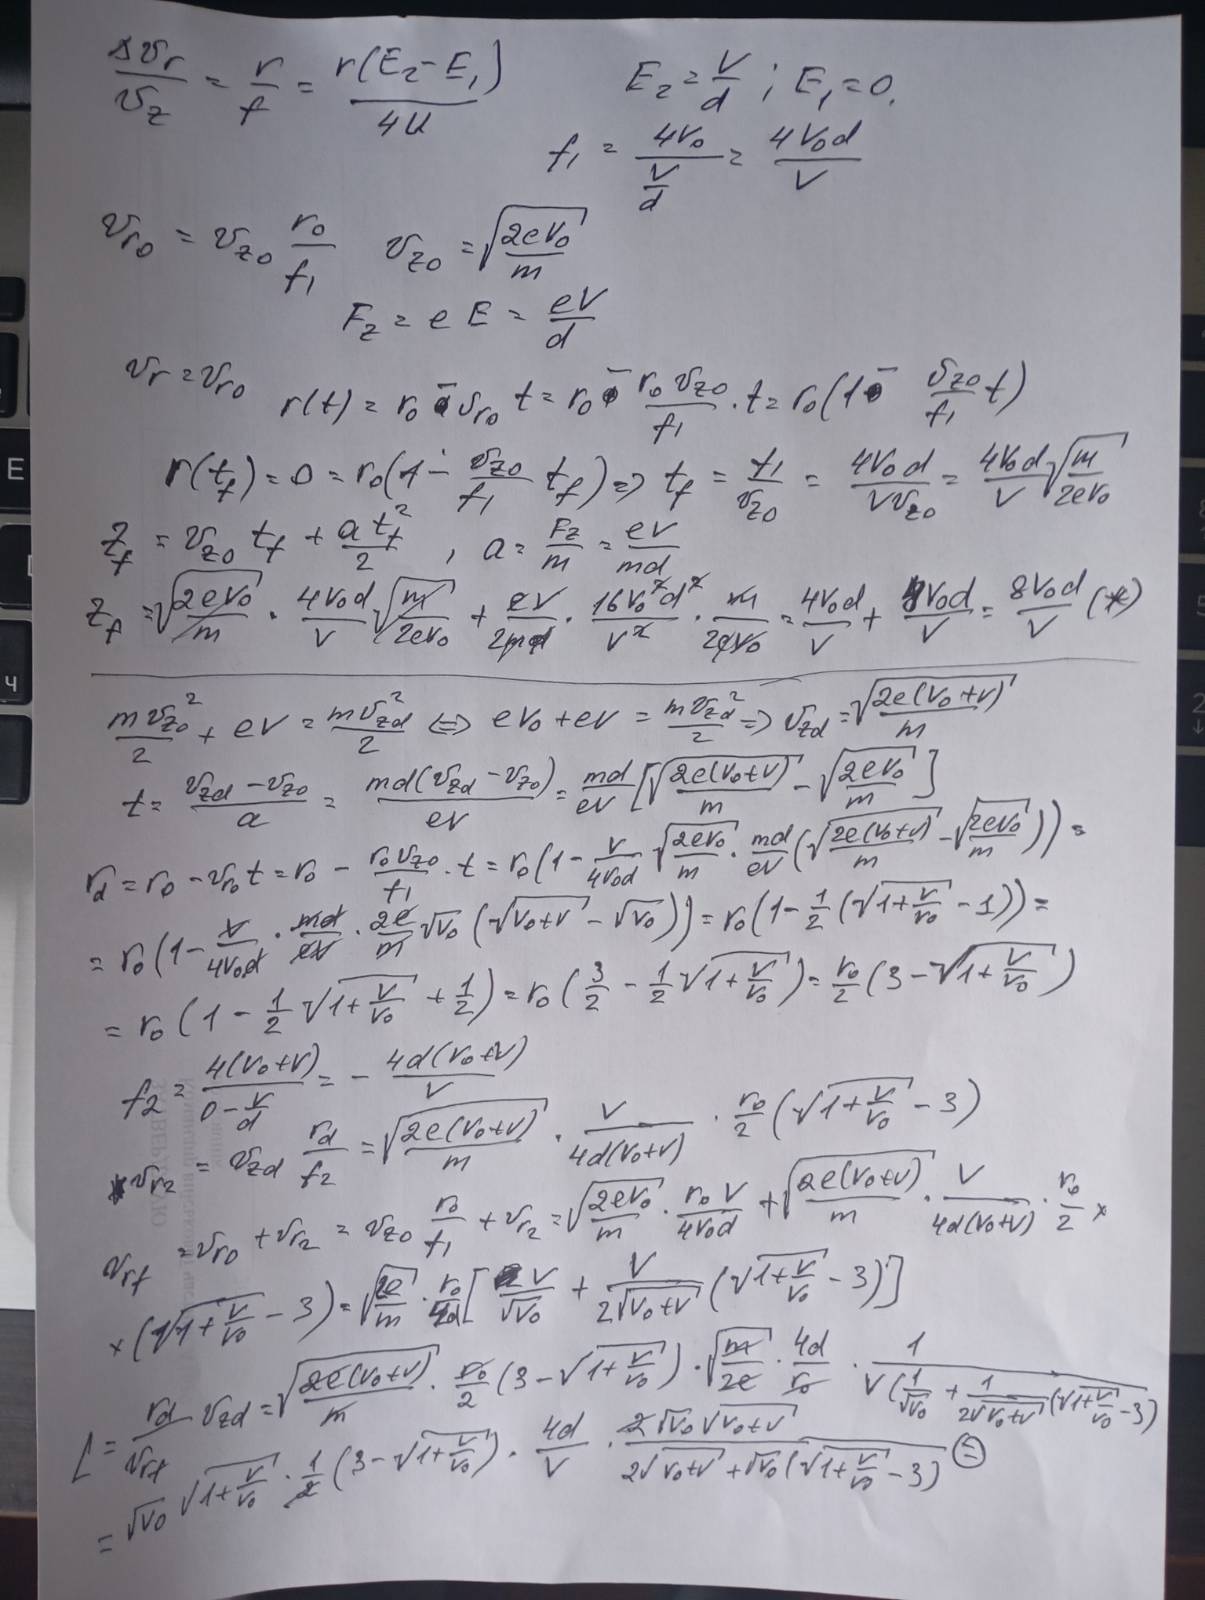 Δv_r/v_z = r/f = r(E₂ − E₁)/4U     E₂ = V/d ; E₁ = 0.
f₁ = 4V₀/(V/d) = 4V₀d/V
v_r0 = v_z0 r₀/f₁     v_z0 = √(2eV₀/m)
F_z = eE = eV/d
v_r = v_r0     r(t) = r₀ − v_r0 t = r₀ − r₀v_z0/f₁ · t = r₀(1 − v_z0/f₁ t)
r(t_f) = 0 = r₀(1 − v_z0/f₁ t_f) ⇒ t_f = f₁/v_z0 = 4V₀d/(V v_z0) = 4V₀d/V √(m/2eV₀)
z_f = v_z0 t_f + a t_f²/2 , a = F_z/m = eV/md
z_f = √(2eV₀/m) · 4V₀d/V √(m/2eV₀) + eV/2md · 16V₀²d²/V² · m/2eV₀ = 4V₀d/V + 4V₀d/V = 8V₀d/V (*)
mv_z0²/2 + eV = mv_zd²/2 ⇔ eV₀ + eV = mv_zd²/2 ⇒ v_zd = √(2e(V₀+V)/m)
t = (v_zd − v_z0)/a = md(v_zd − v_z0)/eV = md/eV [√(2e(V₀+V)/m) − √(2eV₀/m)]
r_d = r₀ − v_r0 t = r₀ − r₀v_z0/f₁ · t = r₀(1 − V/4V₀d √(2eV₀/m) · md/eV (√(2e(V₀+V)/m) − √(2eV₀/m))) =
= r₀(1 − V/4V₀d · md/eV · 2e/m √V₀ (√(V₀+V) − √V₀)) = r₀(1 − 1/2(√(1+V/V₀) − 1)) =
= r₀(1 − 1/2 √(1+V/V₀) + 1/2) = r₀(3/2 − 1/2 √(1+V/V₀)) = r₀/2 (3 − √(1+V/V₀))
f₂ = 4(V₀+V)/(0 − V/d) = − 4d(V₀+V)/V
v_r2 = v_zd r_d/f₂ = √(2e(V₀+V)/m) · V/4d(V₀+V) · r₀/2 (√(1+V/V₀) − 3)
v_rf = v_r0 + v_r2 = v_z0 r₀/f₁ + v_r2 = √(2eV₀/m) · r₀V/4V₀d + √(2e(V₀+V)/m) · V/4d(V₀+V) · r₀/2 ×
× (√(1+V/V₀) − 3) = √(2e/m) · r₀/4d [V/√V₀ + V/2√(V₀+V) (√(1+V/V₀) − 3)]
L = r_d/v_rf v_zd = √(2e(V₀+V)/m) · r₀/2 (3 − √(1+V/V₀)) · √(m/2e) · 4d/r₀ · 1/V(1/√V₀ + 1/2√(V₀+V) (√(1+V/V₀) − 3))
= √V₀ √(1+V/V₀) · 1/2 (3 − √(1+V/V₀)) · 4d/V · 2√V₀√(V₀+V)/(2√(V₀+V) + √V₀(√(1+V/V₀) − 3)) ⊜